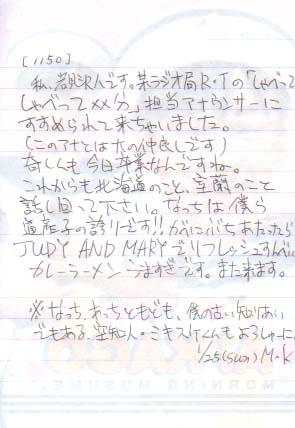 [1150]
私、岩見沢人です。某ラジオ局R・Tの「しゃべって
しゃべって××分」担当アナウンサーに
すすめられて来ちゃいました。
(このアナとは大の仲良しです)
奇しくも今日卒業なんですね。
これからも北海道のこと、室蘭のこと
話し回って下さい。なっちは僕ら
道産子の誇りです!! かべにぶちあたったら
JUDY AND MARYでリフレッシュすんべ
カレーラーメンうますぎです。また来ます。
※なっち、あっちともども、僕の古い知りあい
でもある、室知人・ミキスケくんもよろしゃーに。
1/25(sun) M・K
MORNING MUSUME.